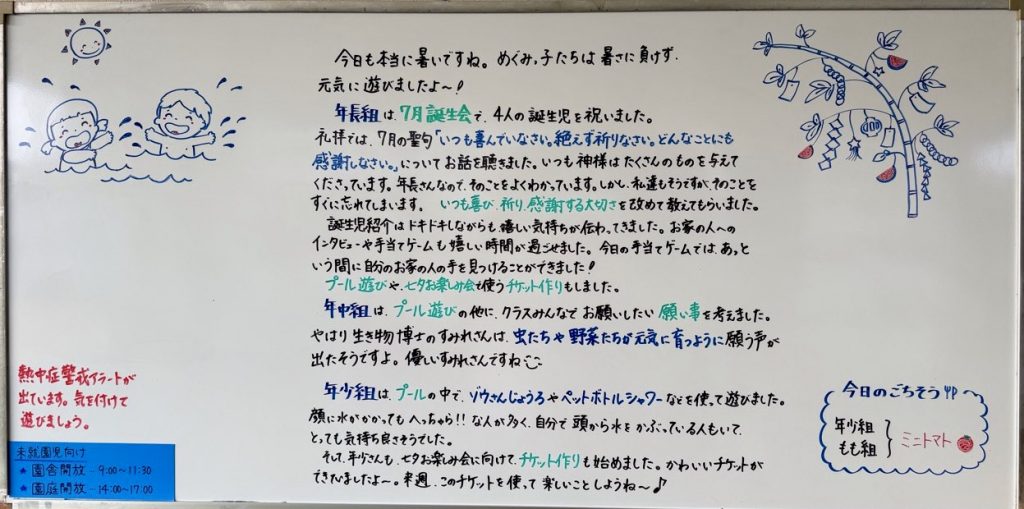 今日も本当に暑いですね。めぐみっ子たちは暑さに負けず、
元気に遊びましたよ～！
年長組は、7月誕生会で、4人の誕生児を祝いました。
礼拝では、7月の聖句「いつも喜んでいなさい。絶えず祈りなさい。どんなことにも
感謝しなさい。」についてお話を聴きました。いつも神様はたくさんのものを与えて
くださっています。年長さんなので、そのことをよくわかっています。しかし、私達もそうですが、そのことを
すぐに忘れてしまいます。いつも喜び、祈り、感謝する大切さを改めて教えてもらいました。
誕生児紹介はドキドキしながらも、嬉しい気持ちが伝わってきました。お家の人への
インタビューや手当てゲームも嬉しい時間が過ごせました。今日の手当てゲームでは、あっと
いう間に自分のお家の人の手を見つけることができました！
プール遊びや、七夕お楽しみ会で使うチケット作りもしました。
年中組は、プール遊びの他に、クラスみんなでお願いしたい願い事を考えました。
やはり生き物博士のすみれさんは、虫たちや野菜たちが元気に育つように願う声が
出たそうですよ。優しいすみれさんですね
年少組は、プールの中で、ゾウさんじょうろやペットボトルシャワーなどを使って遊びました。
顔に水がかかってもへっちゃら!!な人が多く、自分で頭から水をかぶっている人もいて、
とっても気持ち良さそうでした。
そして、年少さんも、七夕お楽しみ会に向けて、チケット作りも始めました。かわいいチケットが
できていましたよ～。来週、このチケットを使って楽しいことしようね～♪
熱中症警戒アラートが
出ています。気を付けて
遊びましょう。
未就園児向け
★ 園舎開放 - 9:00～11:30
★ 園庭開放 - 14:00～17:00
今日のごちそう
年少組
もも組
ミニトマト